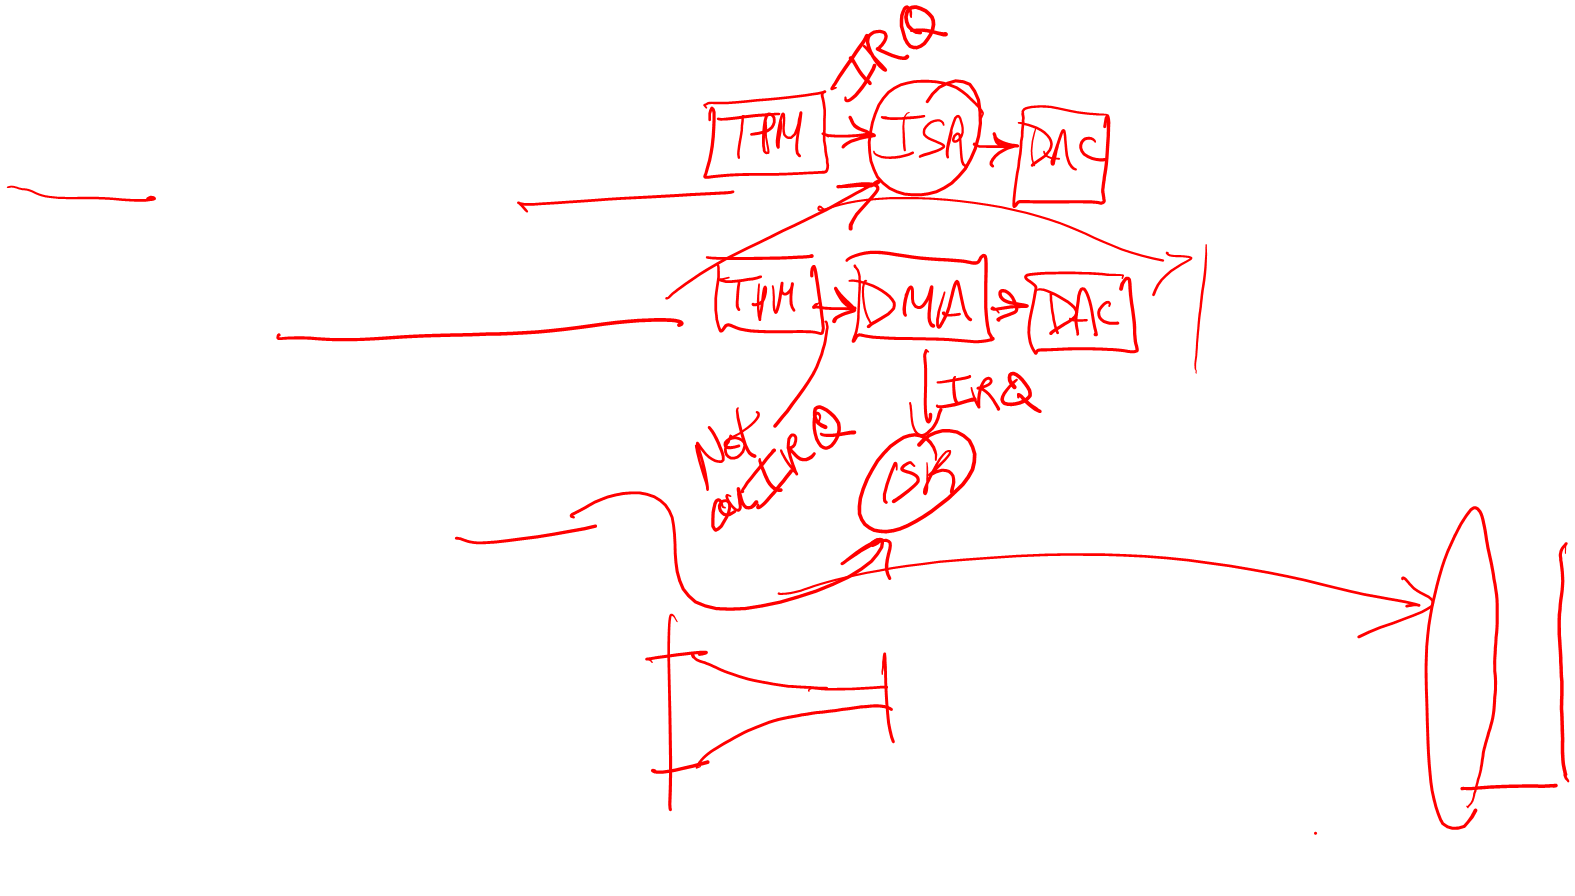 IRQ
TPM ISR DAC
TPM DMA DAC
IRQ
Not
an IRQ
ISR